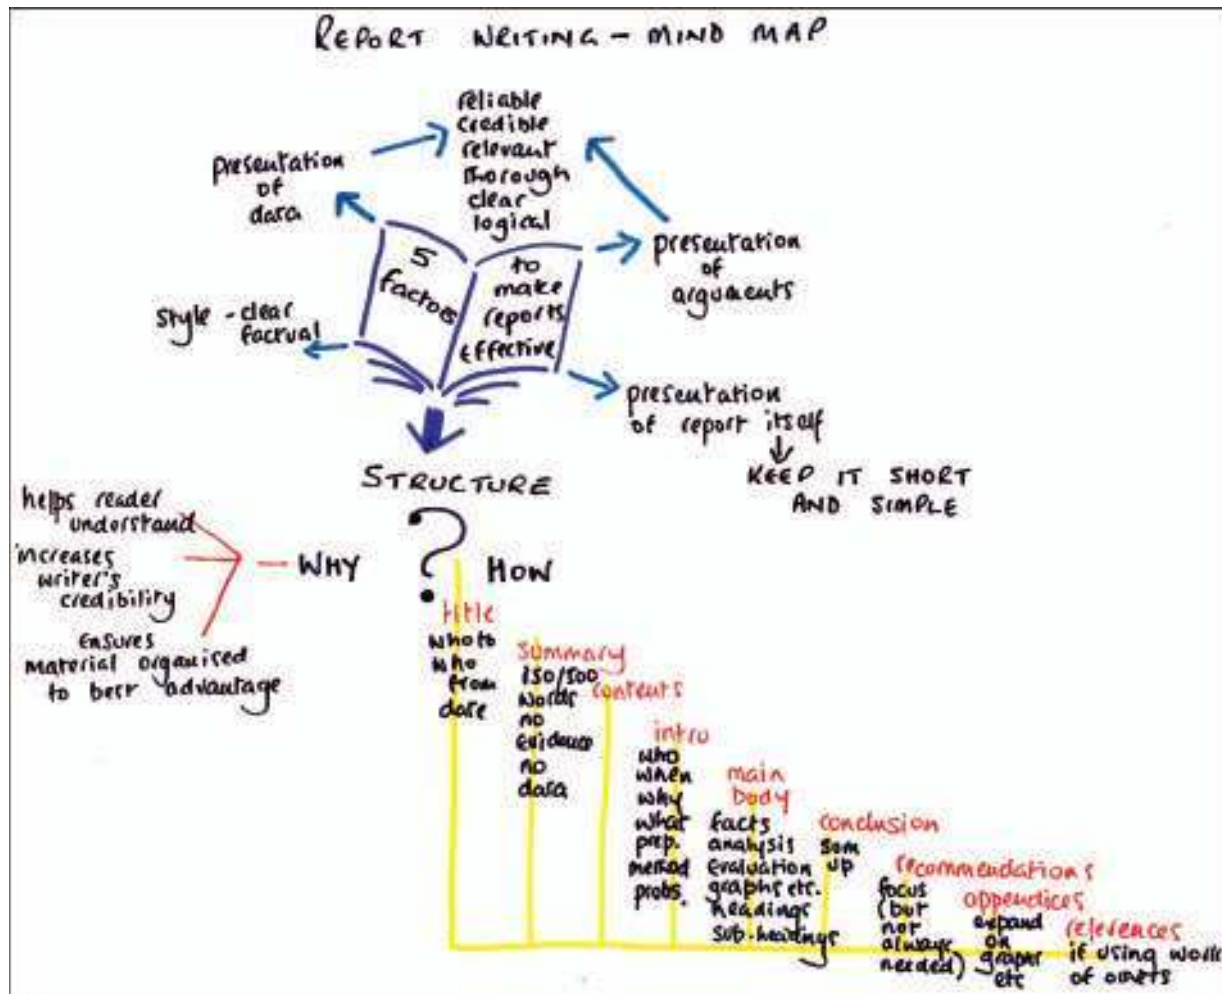 REPORT WRITING - MIND MAP
reliable
credible
relevant
thorough
clear
logical
presentation
of
data
5
factors
to
make
reports
effective
presentation
of
arguments
style - clear
factual
presentation
of report itself
KEEP IT SHORT
AND SIMPLE
STRUCTURE
?
WHY
helps reader
understand
increases
writer's
credibility
ensures
material organised
to best advantage
HOW
title
who to
who
from
date
summary
150/500
words
no
evidence
no
data
contents
intro
who
when
why
what
prep.
method
probs.
main
body
facts
analysis
evaluation
graphs etc.
headings
sub-headings
conclusion
sum
up
recommendations
focus
(but
not
always
needed)
appendices
expand
on
graphs
etc
references
if using work
of others